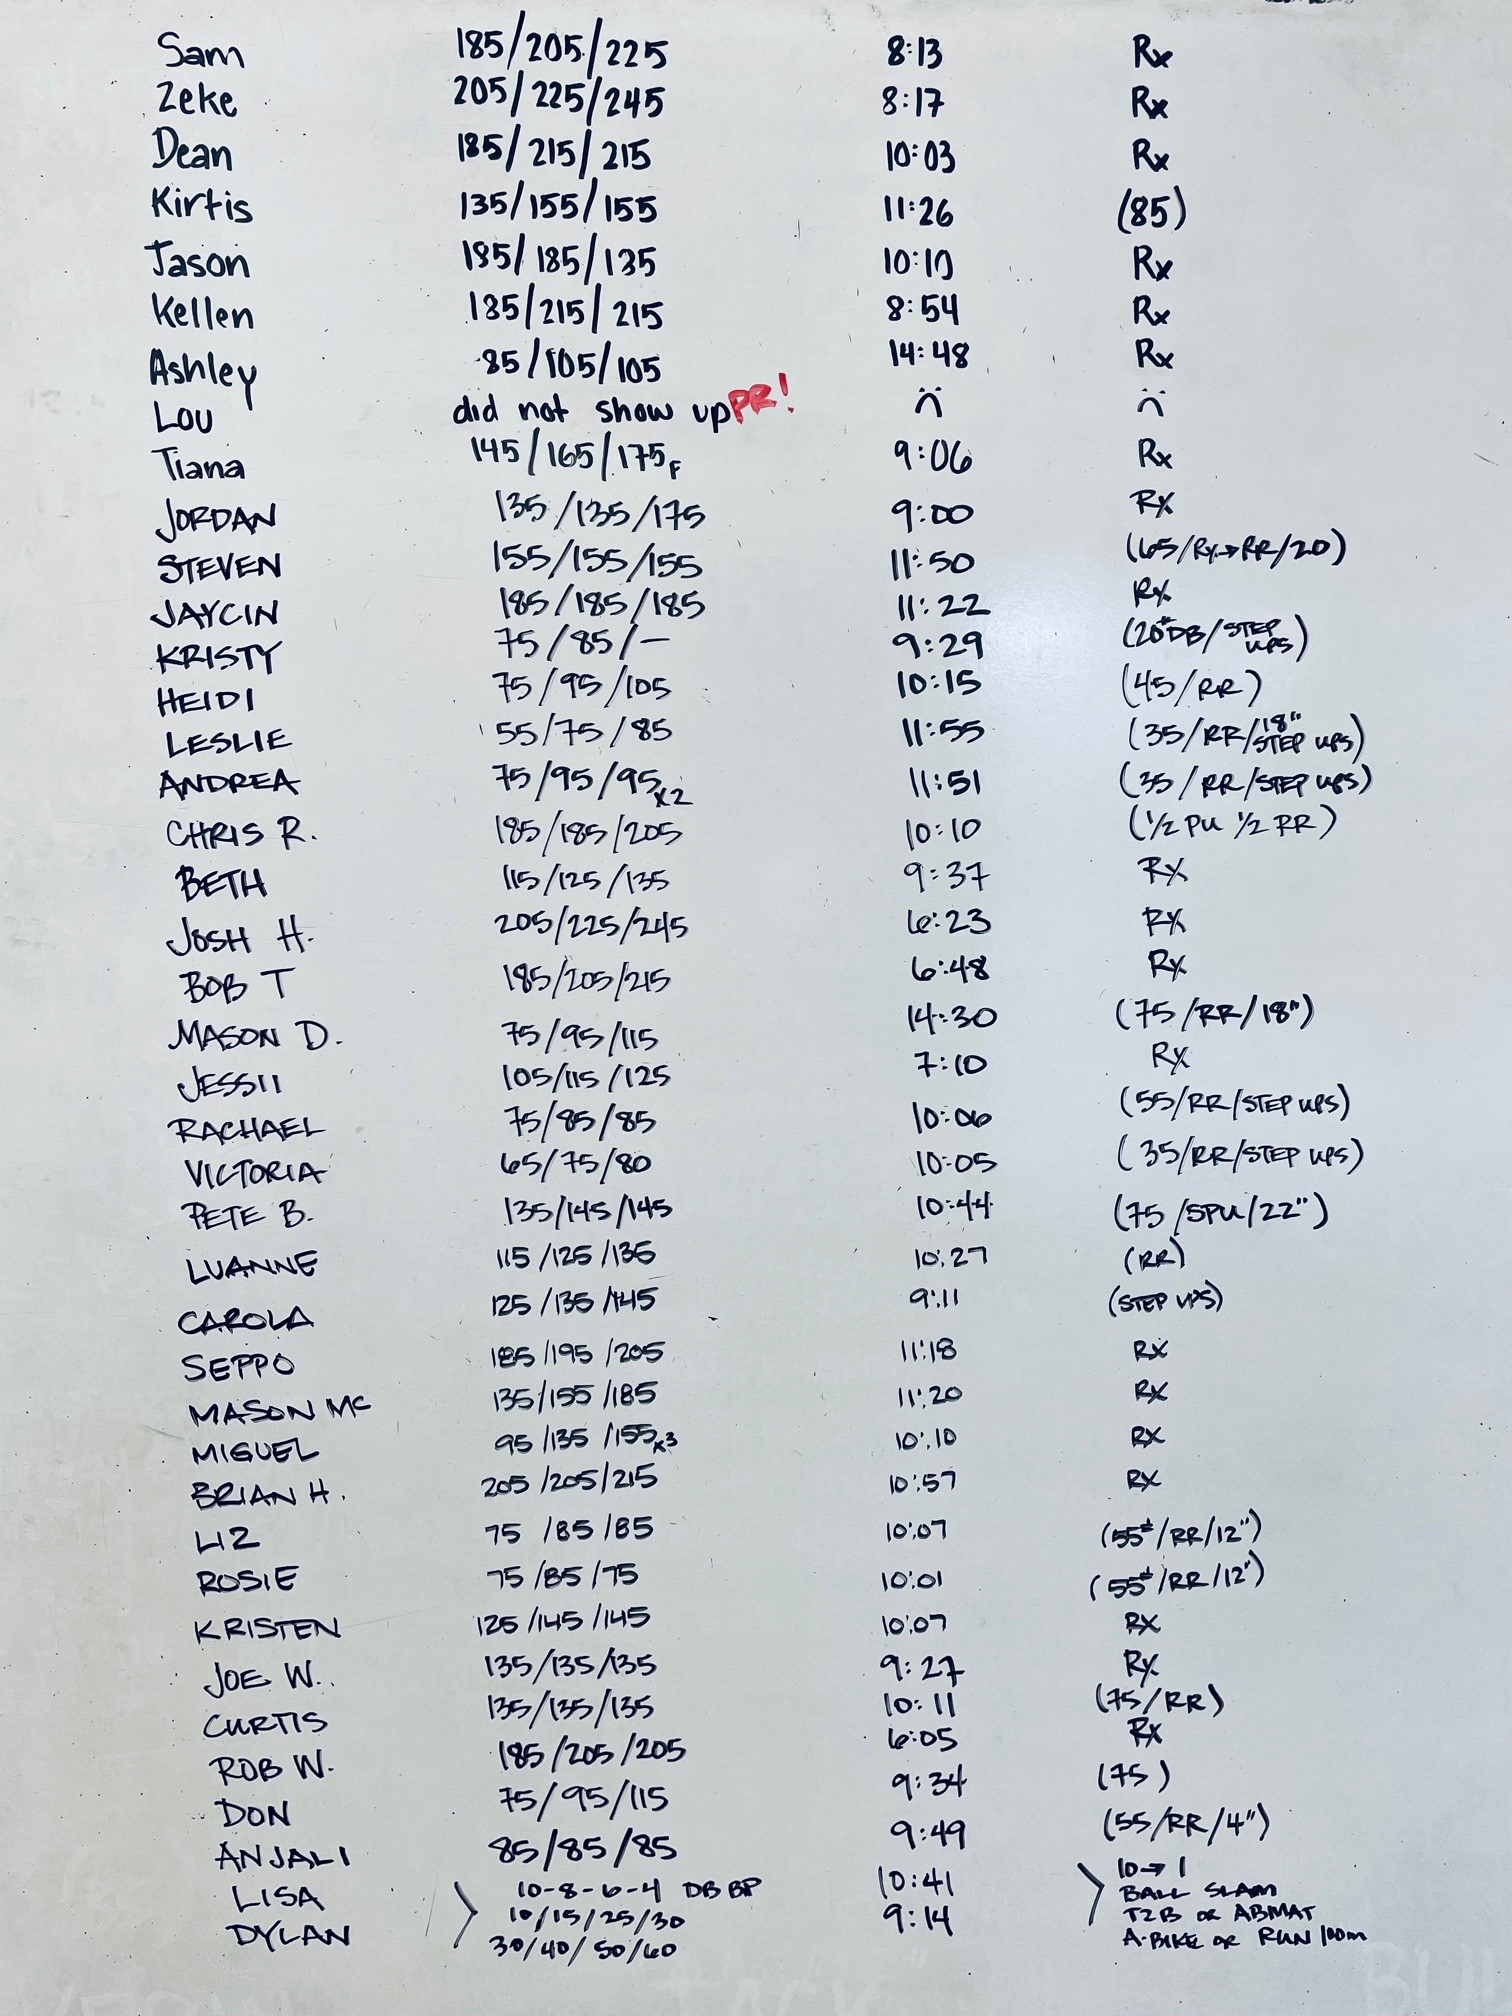 Sam 185/205/225 8:13 Rx
Zeke 205/225/245 8:17 Rx
Dean 185/215/215 10:03 Rx
Kirtis 135/155/155 11:26 (85)
Jason 185/185/135 10:10 Rx
Kellen 185/215/215 8:54 Rx
Ashley 85/105/105 14:48 Rx
Lou did not show up PR!
Tiana 145/165/175F 9:06 Rx
JORDAN 135/135/175 9:00 Rx
STEVEN 155/155/155 11:50 (65/Rx→RR/20)
JAYCIN 185/185/185 11:22 Rx
KRISTY 75/85/— 9:29 (20# DB/STEP UPS)
HEIDI 75/95/105 10:15 (45/RR)
LESLIE 55/75/85 11:55 (35/RR/18" STEP UPS)
ANDREA 75/95/95x2 11:51 (35/RR/STEP UPS)
CHRIS R. 185/185/205 10:10 (1/2 PU 1/2 RR)
BETH 115/125/135 9:37 RX
JOSH H. 205/225/245 6:23 RX
BOB T 185/205/215 6:48 Rx
MASON D. 75/95/115 14:30 (75/RR/18")
JESSII 105/115/125 7:10 Rx
RACHAEL 75/85/85 10:06 (55/RR/STEP UPS)
VICTORIA 65/75/80 10:05 (35/RR/STEP UPS)
PETE B. 135/145/145 10:44 (75/SPU/22")
LUANNE 115/125/135 10:27 (RR)
CAROLA 125/135/145 9:11 (STEP UPS)
SEPPO 185/195/205 11:18 RX
MASON MC 135/155/185 11:20 RX
MIGUEL 95/135/155x3 10:10 RX
BRIAN H. 205/205/215 10:57 RX
LIZ 75/85/85 10:07 (55#/RR/12")
ROSIE 75/85/75 10:01 (55#/RR/12")
KRISTEN 125/145/145 10:07 RX
JOE W. 135/135/135 9:27 Rx
CURTIS 135/135/135 10:11 (75/RR)
ROB W. 185/205/205 6:05 Rx
DON 75/95/115 9:34 (75)
ANJALI 85/85/85 9:49 (55/RR/4")
LISA 10-8-6-4 DB BP 10:41 10→1
10/15/25/30 BALL SLAM
DYLAN 30/40/50/60 9:14 T2B OR ABMAT
A.BIKE OR RUN 100m